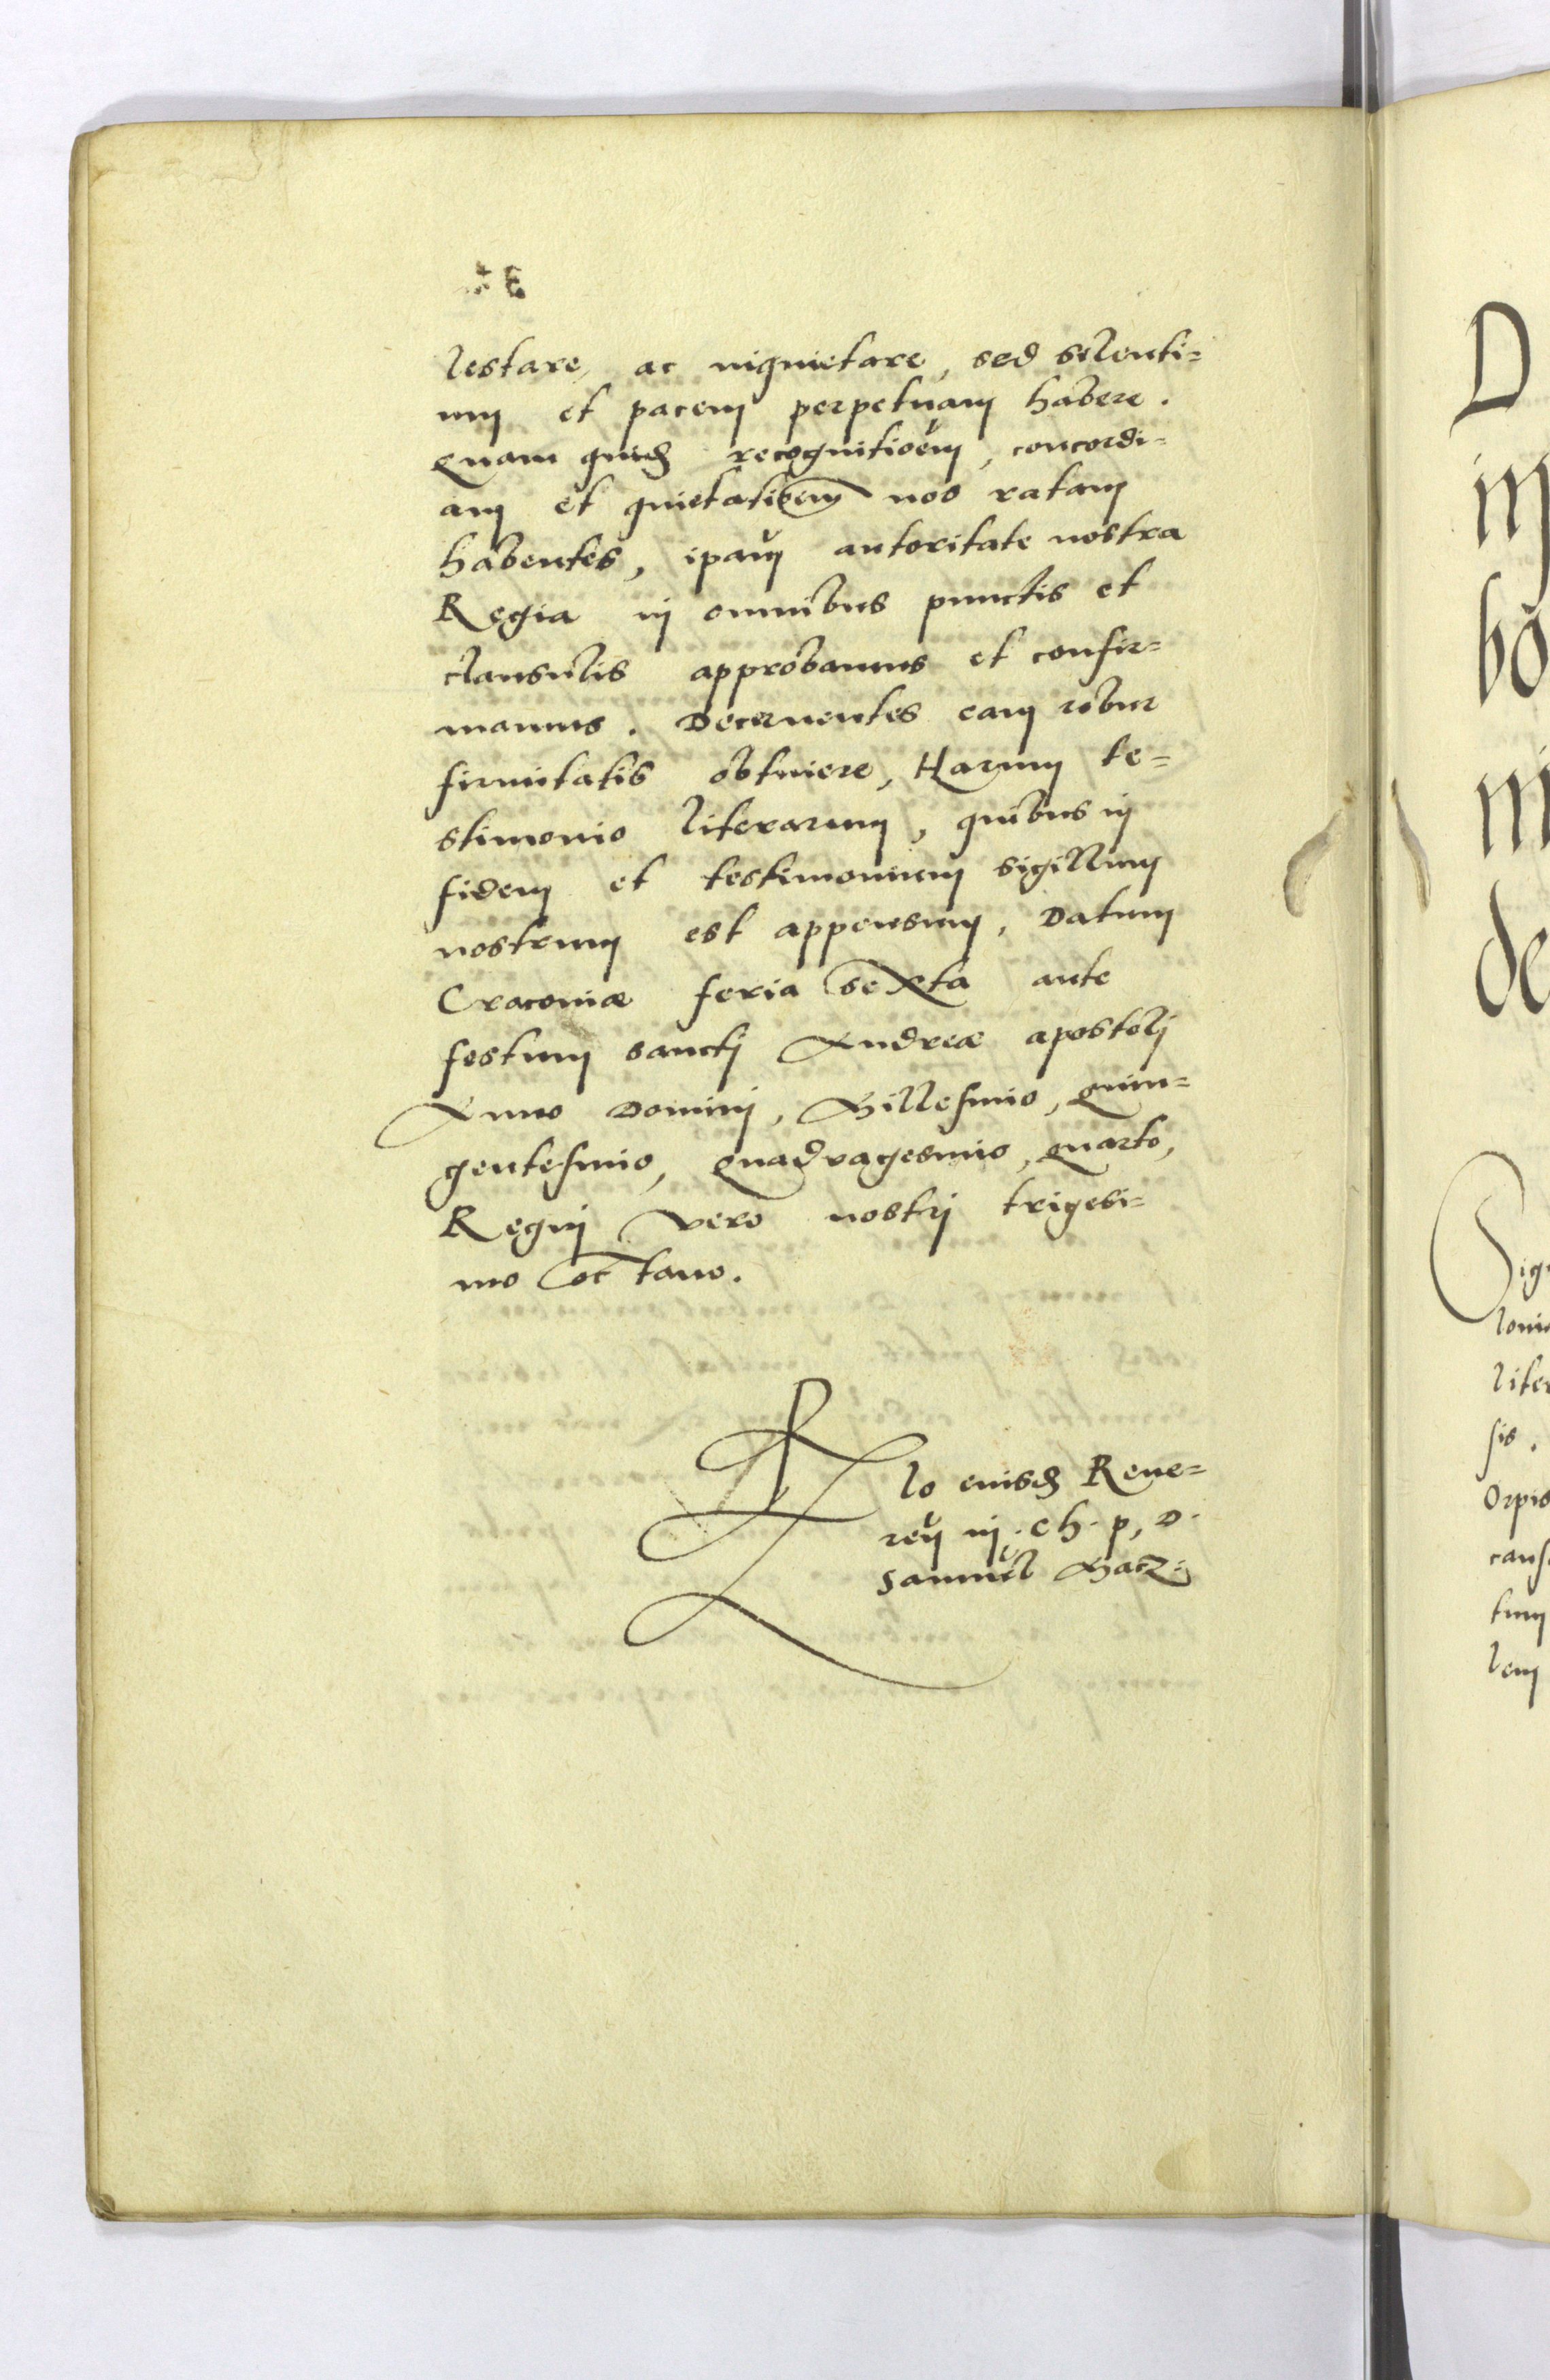 lestare, ac inquietare, sed silenti=
um et pacem perpetuam habere.
Quam quid recognitioem, concordi=
am et quietatioem nos ratam
habentes, ipam autoritate nostra
Regia in omnibus punctis et
clausulis approbamus et confir=
mamus. Decernentes eam robur
firmitatis obtinere, Harum te=
stimonio literarum, quibus in
fidem et testimonium sigillum
nostrum est appensum, Datum
Cracoviæ feria Sexta ante
festum sancti Andreæ apostoli
Anno Domini, Millesimo, quin=
gentesimo, quadragesimo, quarto,
Regni vero nostri trigesi=
mo octavo.
lo eiusd Reve=
ren in . Ch . p, D.
Samuel Macz.
D
in
bo
de
Sig
loni
liter
sis.
Orpis
caus
tum
lem